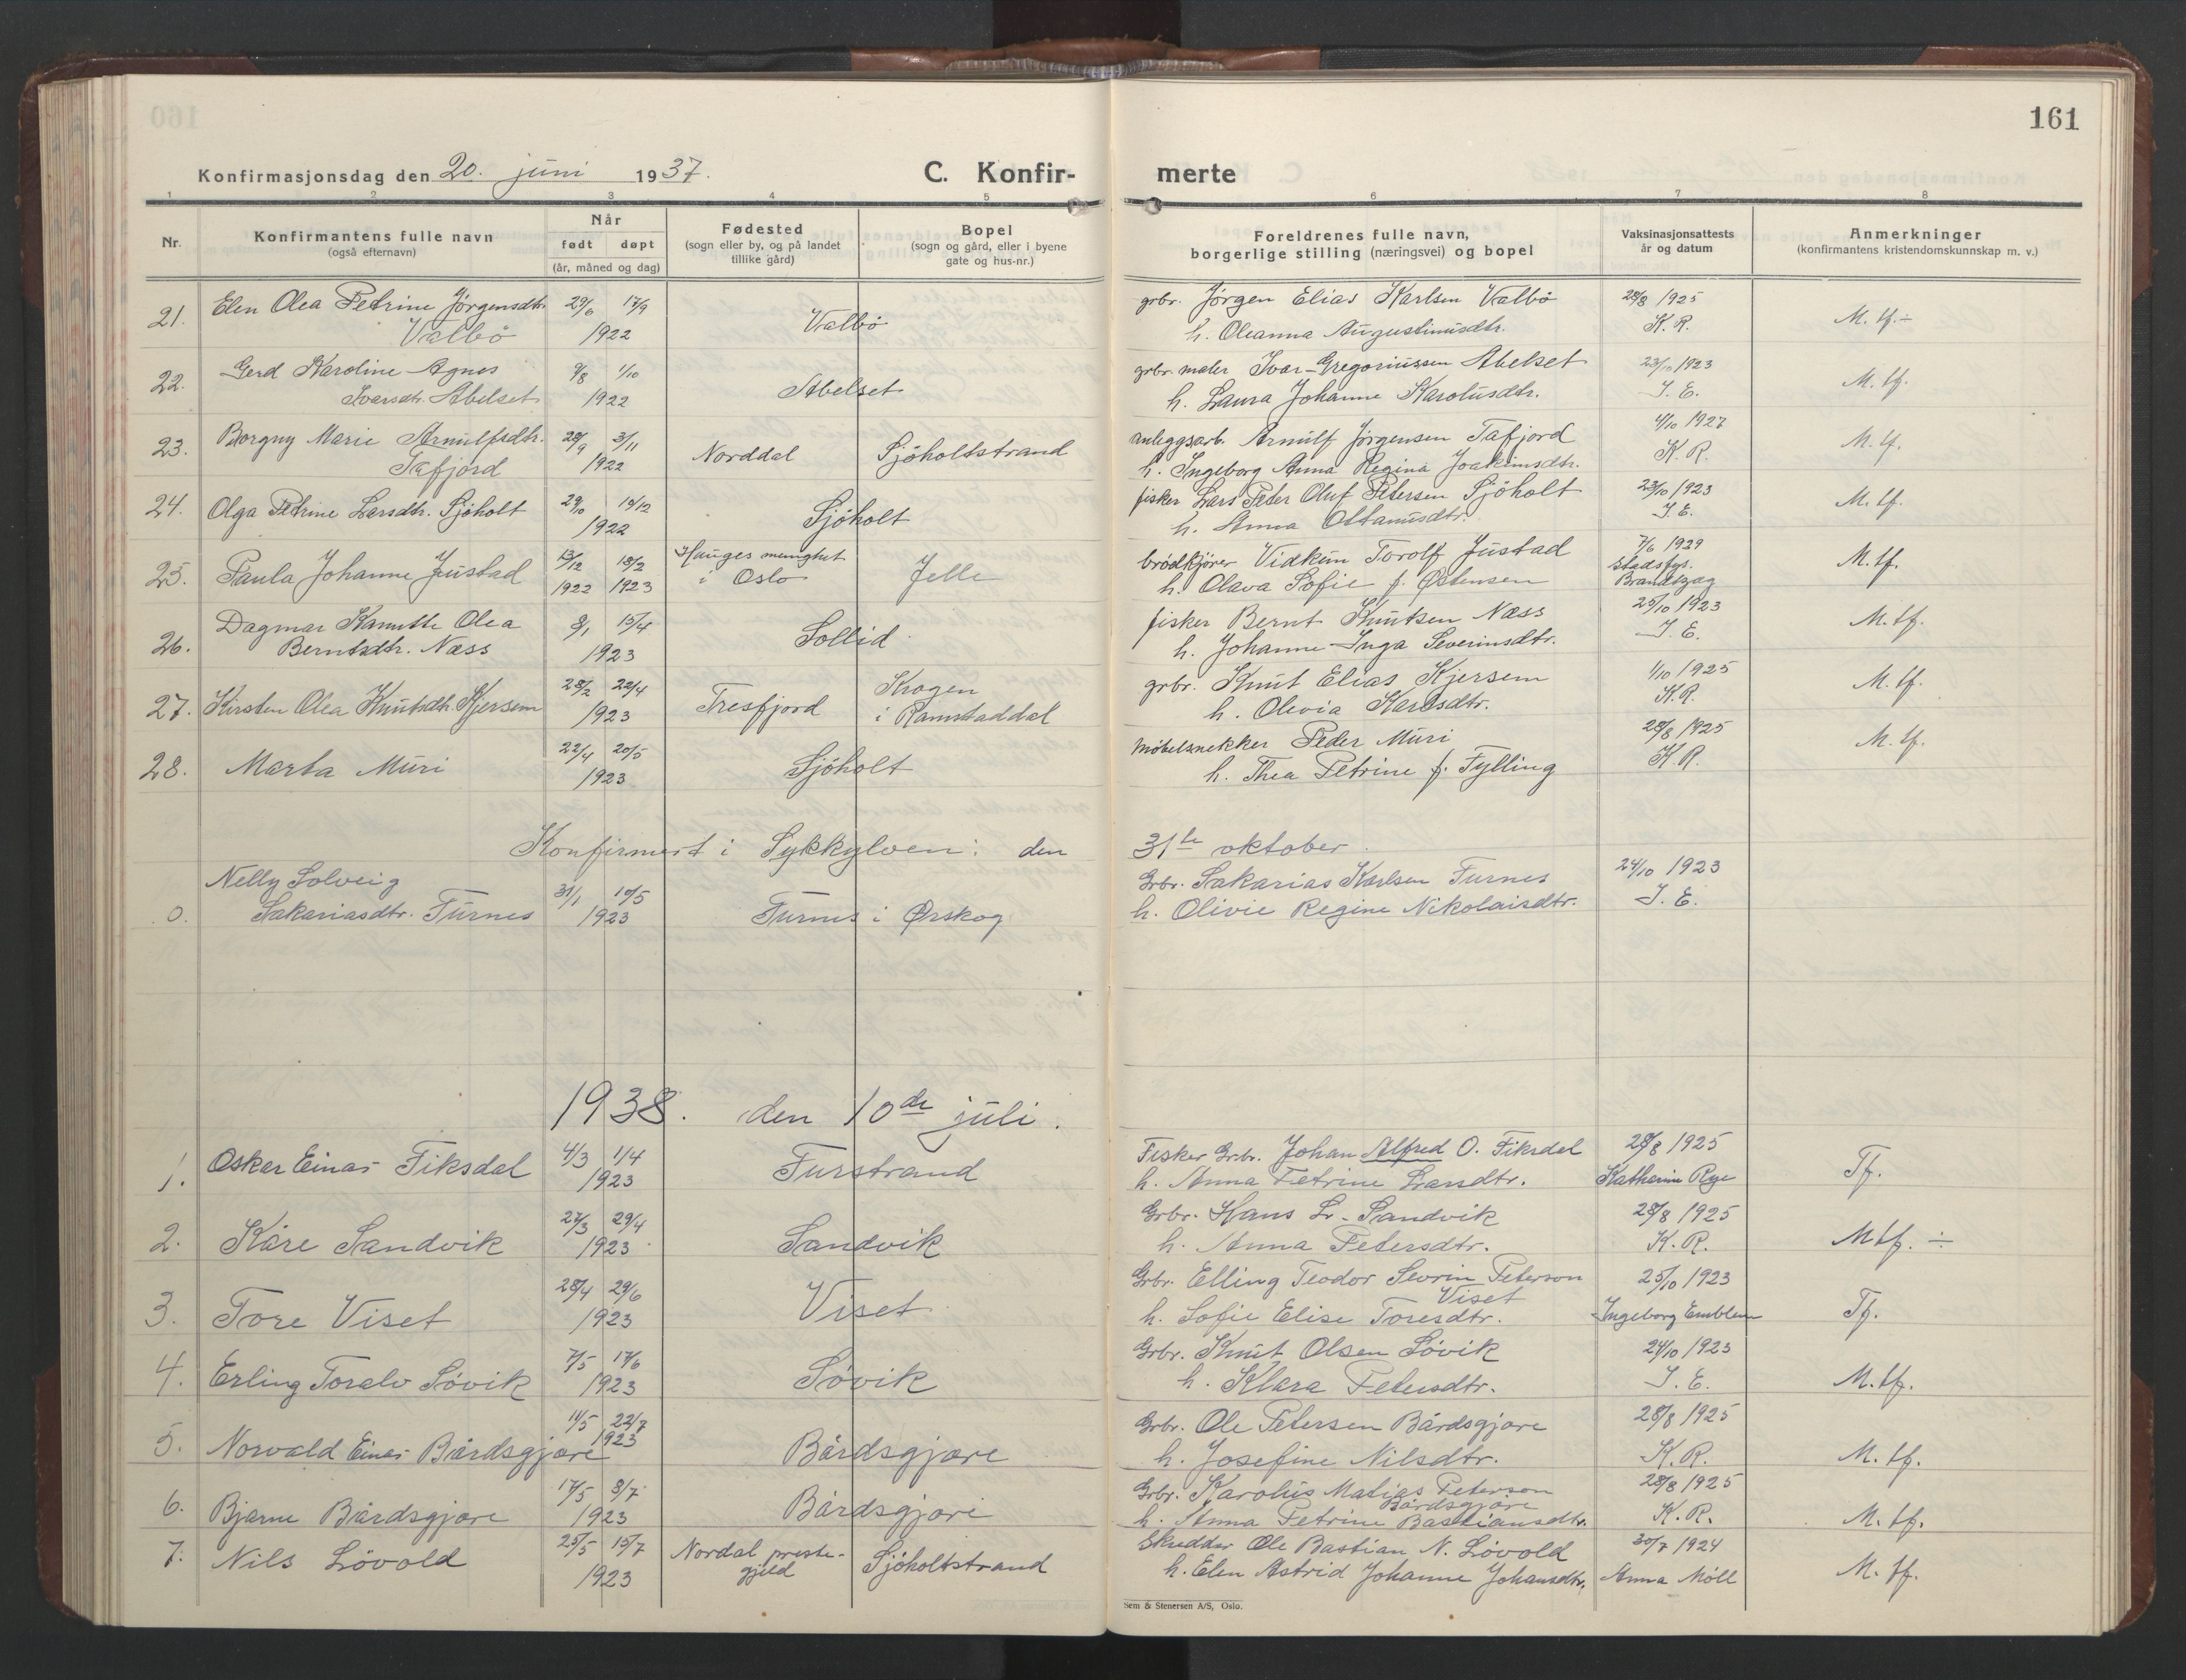 161
Konfirmasjonsdag den 20. juni 1937.
C. Konfir-
merte
1 2 3 4 5 6 7 8
Nr.
Konfirmantens fulle navn
(også efternavn)
Når
født døpt
(år, måned og dag)
Fødested
(sogn eller by, og på landet
tillike gård)
Bopel
(sogn og gård, eller i byene
gate og hus-nr.)
Foreldrenes fulle navn,
borgerlige stilling (næringsvei) og bopel
Vaksinasjonsattests
år og datum
Anmerkninger
(konfirmantens kristendomskunnskap m. v.)
Elen Olea Petrine Jørgensdtr. 29/6 17/9 grbr. Jørgen Elias Karlsen Valbø 28/8 1925
21. Valbø 1922 Valbø h. Oleanna Augustinusdtr. K. R. M. tf. ÷
Gerd Karoline Agnes 9/8 1/10 grbr. maler Ivar Gregoriussen Abelset 23/10 1923
22. Iversdtr. Abelset 1922 Abelset h. Laura Johanne Karolusdtr. I. E. M. tf.
Borgny Marie Arnulfsdtr. 28/9 3/11 anleggsarb. Arnulf Jørgensen Tafjord 4/10 1927
23. Tafjord 1922 Norddal Sjøholtstrand h. Ingeborg Anna Regina Joakimsdtr. K. R. M. tf.
24. Olga Petrine Larsdtr. Sjøholt 29/10 10/12 fisker Lars Peder Oluf Petersen Sjöholt 23/10 1923 M. tf.
1922 Sjöholt h. Anna Ottanusdtr. I. E.
13/12 18/2 Hauges menighet brødkjører Vidkun Torolf Justad 7/6 1929
25. Paula Johanne Justad i Oslo Jelle h. Olava Sofie f. Østensen Stadsfys. M. tf.
1922 1923 Brandtzæg
Dagmar Kamitte Olea 8/1 15/4 fisker Bernt Knutsen Næss 25/10 1923
26. Berntsdtr. Næss 1923 Sollid h. Johanne Inga Severinsdtr. I. E. M. tf.
28/2 22/4 Krogen grbr. Knut Elias Kjersem 1/10 1925
27. Kirsten Olea Knutsdtr. Kjersem 1923 Tresfjord i Ramstaddal h. Olevia Karlsdtr. K. R. M. tf.
22/4 20/5 møbelsnekker Peder Muri 28/8 1925
28. Marta Muri 1923 Sjöholt h. Thea Petrine f. Fylling K. R. M. tf.
Konfirmert i Sykkylven: den 31te oktober.
Nelly Solveig 31/1 10/5 Grbr. Sakarias Karlsen Furnes 24/10 1923
0. Sakariasdtr. Furnes 1923 Furnes i Ørskog h. Olivie Regine Nikolaisdtr. I. E.
1938. den 10de juli.
4/3 1/4 Fisker Grbr. Johan Alfred O. Fiksdal 28/8 1925
1. Oskar Einar Fiksdal 1923 Furstrand h. Anna Petrine Larsdtr. Katharine Rye Tf.
27/3 29/4 Grbr. Hans L. Sandvik 28/8 1925
2. Kåre Sandvik 1923 Sandvik h. Anna Petersdtr. K. R. Mtf. ÷
28/4 29/6 Grbr. Elling Teodor Sevrin Peterson 25/10 1923
Viset
3. Tore Viset 1923 Viset h. Sofie Elise Toresdtr. Ingeborg Emblem Tf.
7/5 17/6 Grbr. Knut Olsen Søvik 24/10 1923
4. Erling Toralv Søvik 1923 Søvik h. Klara Petersdtr. I. E. M. tf.
11/5 22/7 Grbr. Ole Petersen Bårdsgjøre 28/8 1925
5. Norvald Einar Bårdsgjøre 1923 Bårdsgjøre h. Josefine Nilsdtr. K. R. M. tf.
17/5 8/7 Grbr. Karolus Matias Peterson 28/8 1925
Bårdsgjøre
6. Bjarne Bårdsgjøre 1923 Bårdsgjøre h. Anna Petrine Bastiansdtr. K. R. M. tf.
25/5 15/7 Nordal preste- Skredder Ole Bastian N. Løvold 30/7 1924
7. Nils Løvold 1923 gjeld Sjøholtstrand h. Elen Astrid Johanne Johansdtr. Anna Möll M. tf.
Sem & Stenersen A/S, Oslo.